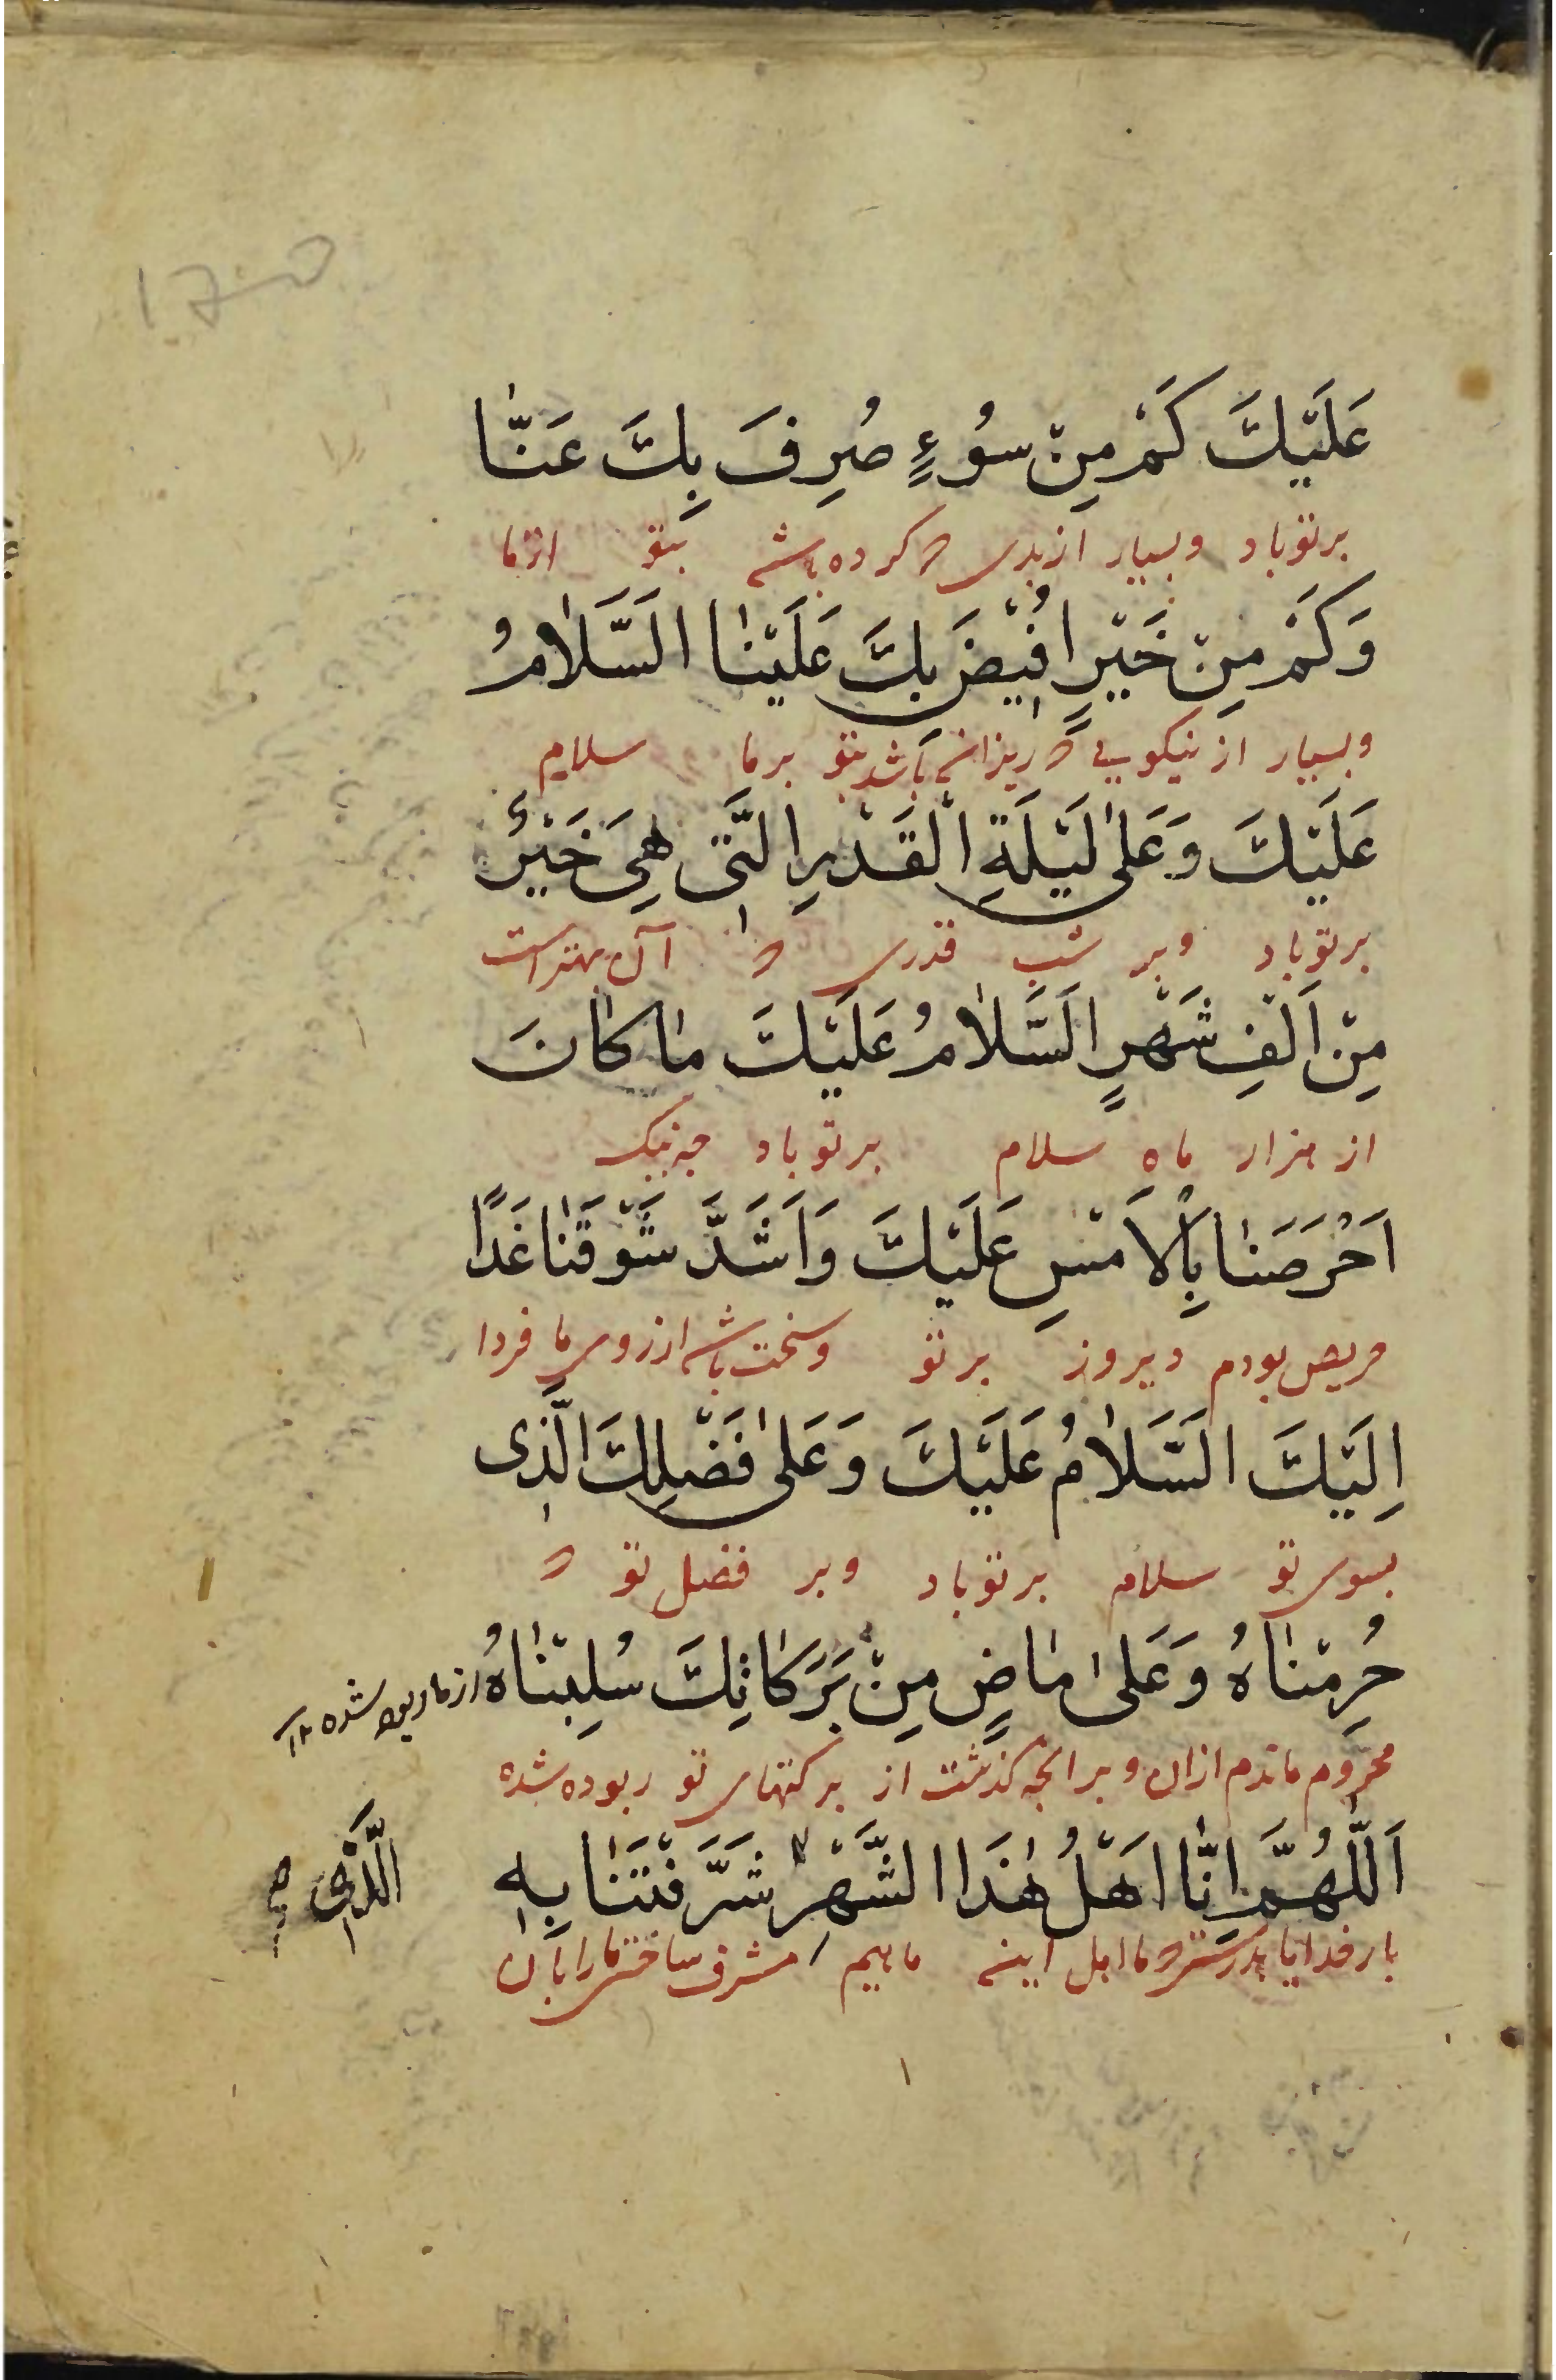 عَلَيْكَ كَمْ مِنْ سُوءٍ صُرِفَ بِكَ عَنَّا
برتو باد و بسیار از بدی که کرده باشد بتو از ما
وَكَمْ مِنْ خَيْرٍ اُفِيْضَ بِكَ عَلَيْنَا اَلسَّلَامُ
و بسیار از نیکویی که ریزانیده باشد بتو بر ما سلام
عَلَيْكَ وَعَلىٰ لَيْلَةِ الْقَدْرِ الَّتِى هِىَ خَيْرٌ
برتو باد و بر شب قدری که آن بهتر است
مِنْ اَلْفِ شَهْرٍ اَلسَّلَامُ عَلَيْكَ مَا كَانَ
از هزار ماه سلام برتو باد چه نیک
اَحْرَصَنَا بِالْاَمْسِ عَلَيْكَ وَاَشَدَّ شَوْقَنَا غَدًا
حریص بودم دیروز بر تو و سخت باشد ارزوی ما فردا
اِلَيْكَ اَلسَّلَامُ عَلَيْكَ وَعَلىٰ فَضْلِكَ الَّذِى
بسوی تو سلام برتو باد و بر فضل تو که
حُرِمْنَاهُ وَعَلىٰ مَاضٍ مِنْ بَرَكَاتِكَ سُلِبْنَاهُ
از ما ربوده شده ۱۲
محروم ماندم ازان و بر انچه گذشت از برکتهای تو ربوده شده
اَللّٰهُمَّ اِنَّا اَهْلُ هٰذَا الشَّهْرِ شَرَّفْتَنَا بِهِ
الَّذِى صح
بار خدایا بدرستی که ما اهل اینه ماهیم مشرف ساختی ما را بآن